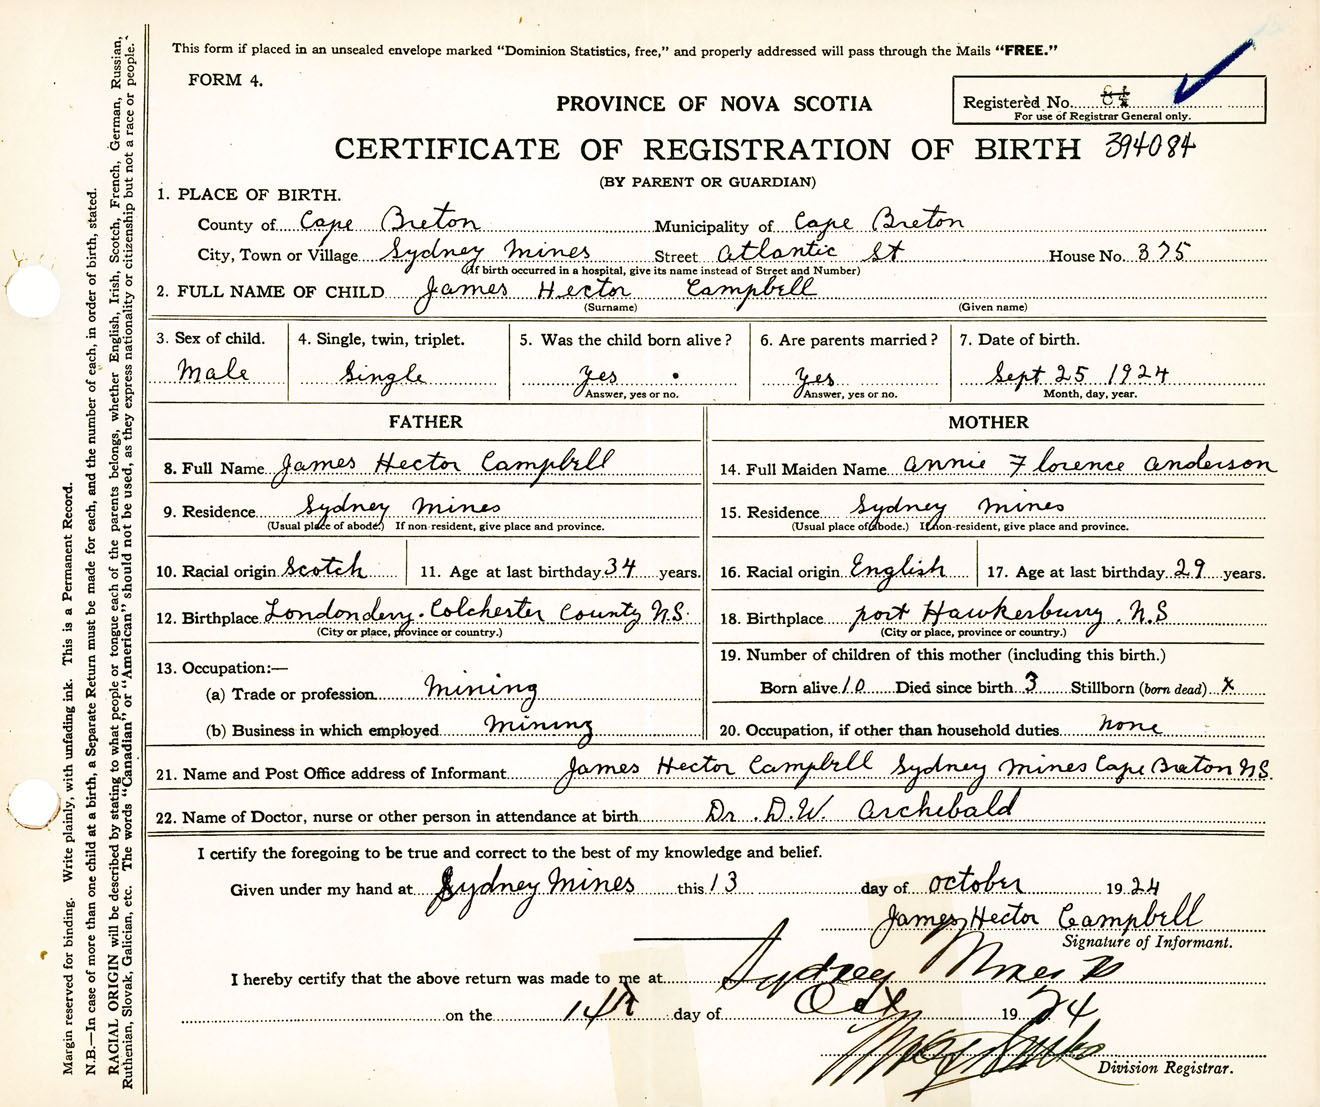 This form if placed in an unsealed envelope marked "Dominion Statistics, free," and properly addressed will pass through the Mails "FREE."
FORM 4.
PROVINCE OF NOVA SCOTIA
Registered No.
For use of Registrar General only.
CERTIFICATE OF REGISTRATION OF BIRTH 394084
(BY PARENT OR GUARDIAN)
1. PLACE OF BIRTH.
County of Cape Breton Municipality of Cape Breton
City, Town or Village Sydney Mines Street Atlantic St House No. 375
(If birth occurred in a hospital, give its name instead of Street and Number)
2. FULL NAME OF CHILD James Hector Campbell
(Surname) (Given name)
3. Sex of child. 4. Single, twin, triplet. 5. Was the child born alive? 6. Are parents married? 7. Date of birth.
Male Single Yes Yes Sept 25 1924
Answer, yes or no. Answer, yes or no. Month, day, year.
FATHER MOTHER
8. Full Name James Hector Campbell 14. Full Maiden Name Annie Florence Anderson
9. Residence Sydney Mines 15. Residence Sydney Mines
(Usual place of abode.) If non-resident, give place and province. (Usual place of abode.) If non-resident, give place and province.
10. Racial origin Scotch 11. Age at last birthday 34 years. 16. Racial origin English 17. Age at last birthday 29 years.
12. Birthplace Londondery. Colchester County N.S. 18. Birthplace port Hawkerburry. N.S
(City or place, province or country.) (City or place, province or country.)
13. Occupation:— 19. Number of children of this mother (including this birth.)
(a) Trade or profession Mining Born alive 10 Died since birth 3 Stillborn (born dead) x
(b) Business in which employed Mining 20. Occupation, if other than household duties none
21. Name and Post Office address of Informant James Hector Campbell Sydney Mines Cape Breton N.S.
22. Name of Doctor, nurse or other person in attendance at birth Dr. D.W. Archibald
I certify the foregoing to be true and correct to the best of my knowledge and belief.
Given under my hand at Sydney Mines this 13 day of October 1924
James Hector Campbell
Signature of Informant.
I hereby certify that the above return was made to me at Sydney Mines
on the 14th day of Oct 1924
Division Registrar.
Margin reserved for binding. Write plainly, with unfading ink. This is a Permanent Record.
N.B.—In case of more than one child at a birth, a Separate Return must be made for each, and the number of each, in order of birth, stated.
RACIAL ORIGIN will be described by stating to what people or tongue each of the parents belongs, whether English, Irish, Scotch, French, German, Russian,
Ruthenian, Slovak, Galician, etc. The words "Canadian" or "American" should not be used, as they express nationality or citizenship but not a race or people.